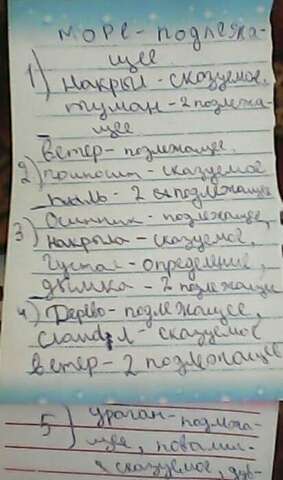 море - подлежа-
щее
1) накрыл - сказуемое,
туман - 2 подлежа-
щее
ветер - подлежащее.
2) приносит - сказуемое
пыль - 2
3) Осинник - подлежащее,
накрыла - сказуемое,
густая - определение,
дымка - 2 подлежащее
4) Дерево - подлежащее,
сказуемое
ветер - 2 подлежащее
5) ураган - подлежа-
щее, повалил -
сказуемое, дуб-